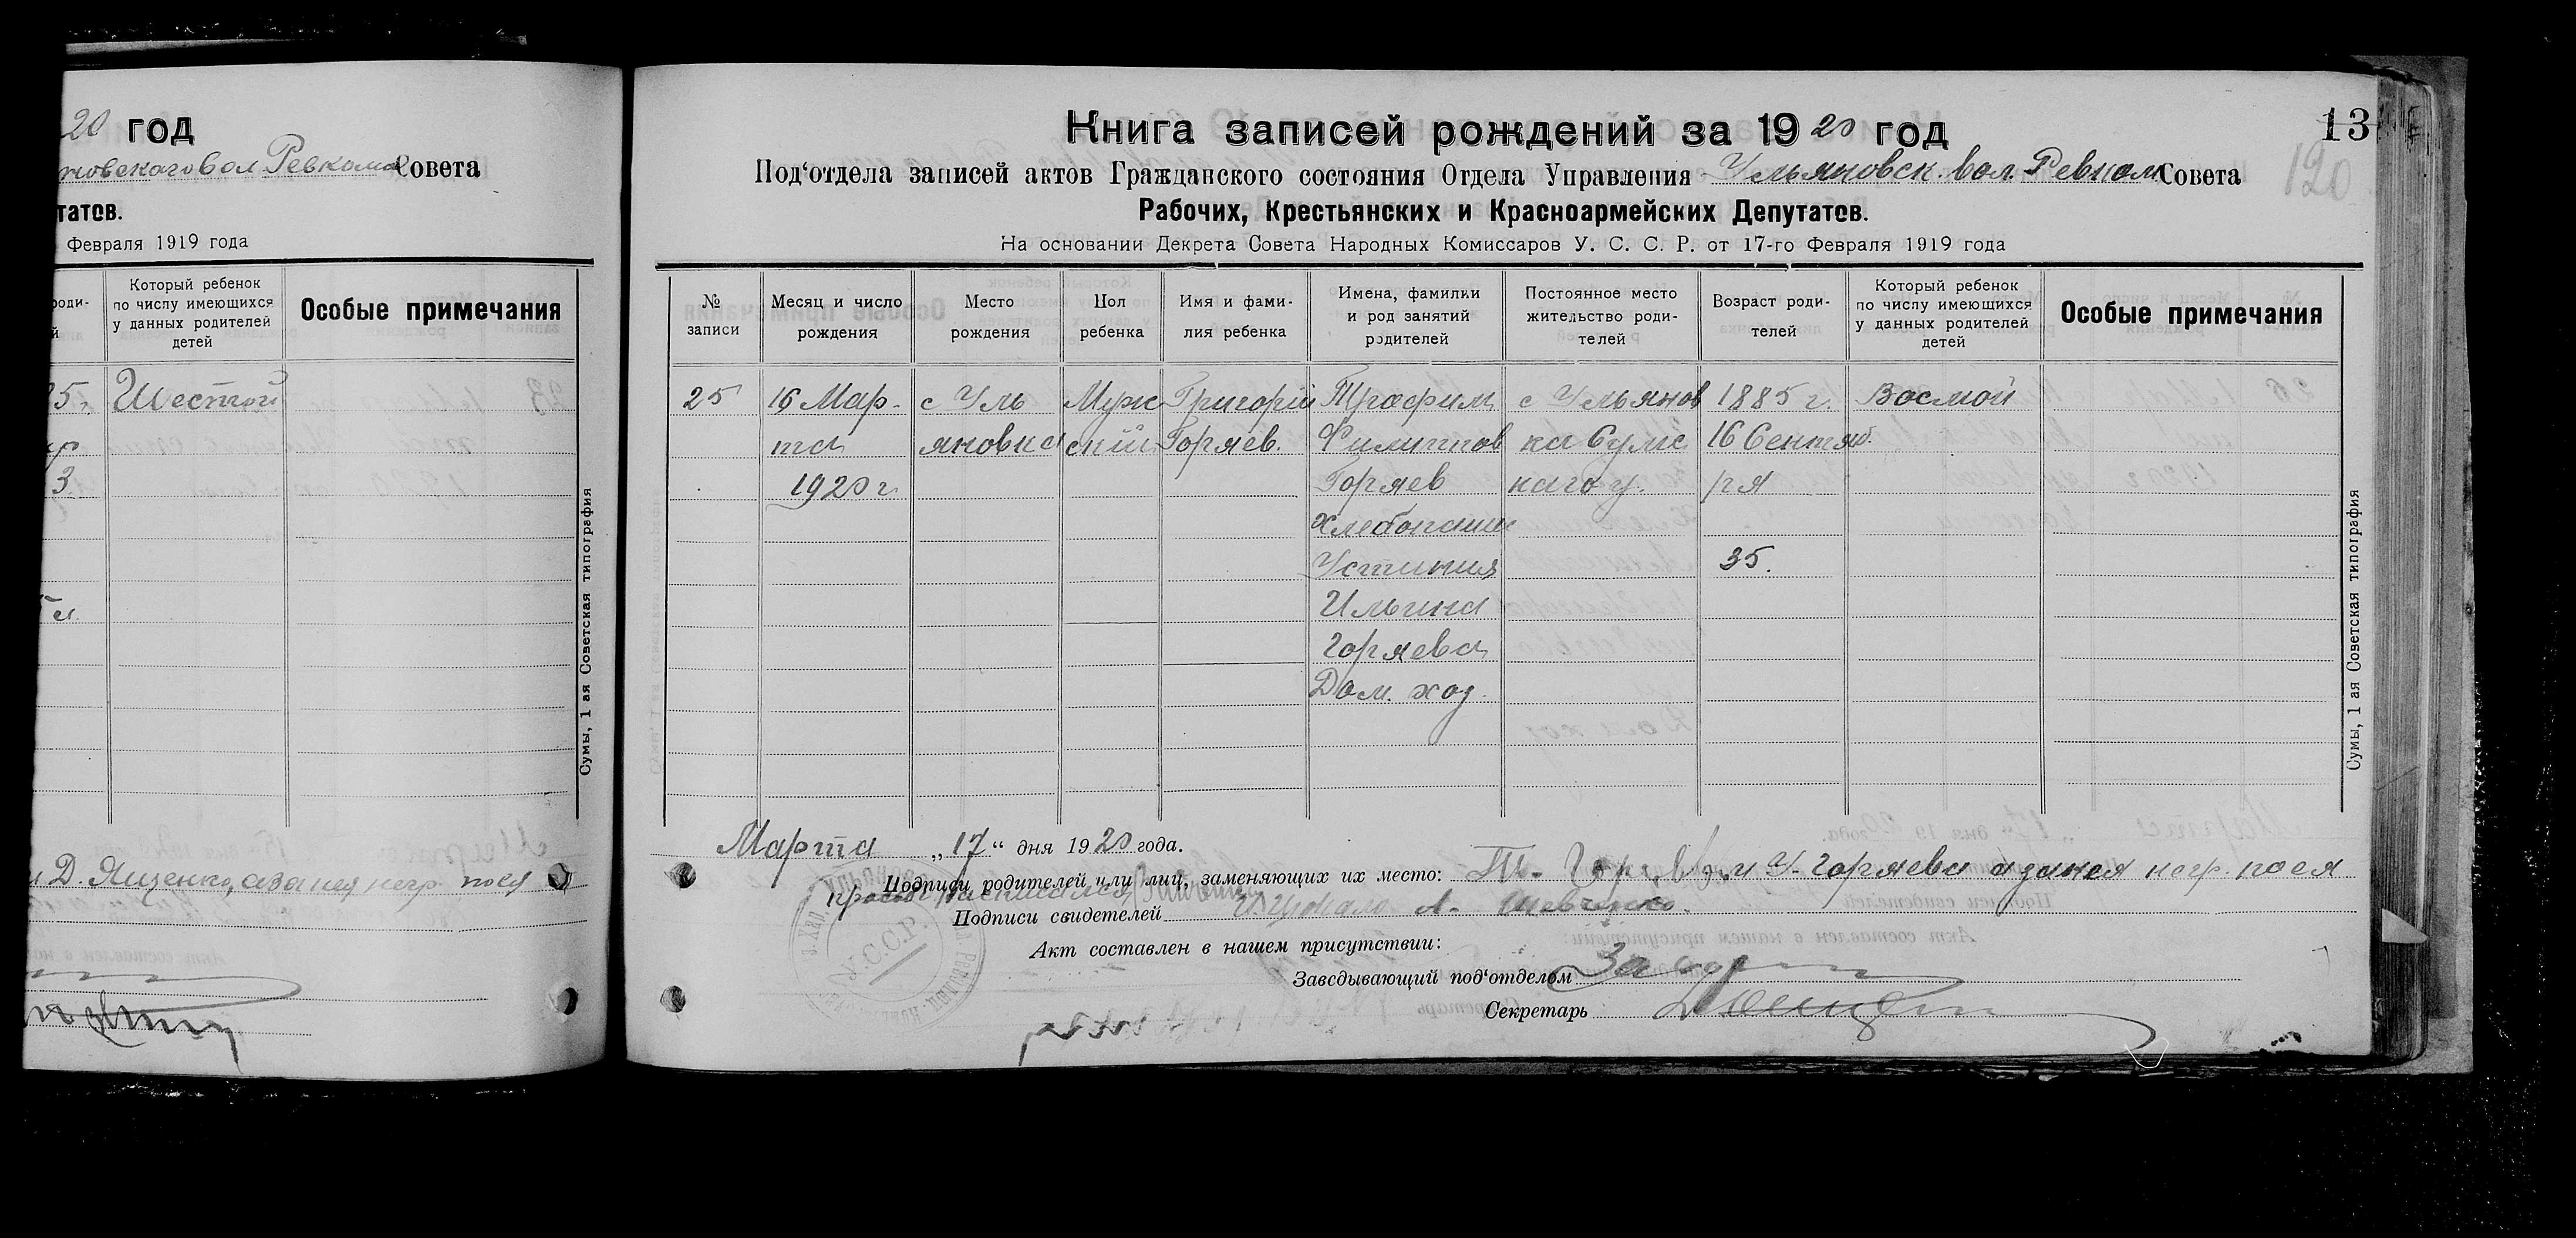 20 год
новскаго вол Ревкома Совета
татов.
Февраля 1919 года
роди-
й
Который ребенок
по числу имеющихся
у данных родителей
детей
Особые примечания
5 г. Шестой
3
Д. Яценко, а за нея негр. по ея
Сумы, 1 ая Советская типография
13
120
Книга записей рождений за 1920 год
Под‘отдела записей актов Гражданского состояния Отдела Управления Ульяновск. вол. Ревком Совета
Рабочих, Крестьянских и Красноармейских Депутатов.
На основании Декрета Совета Народных Комиссаров У. С. С. Р. от 17-го Февраля 1919 года
№
записи
Месяц и число
рождения
Место
рождения
Пол
ребенка
Имя и фами-
лия ребенка
Имена, фамилии
и род занятий
родителей
Постоянное место
жительство роди-
телей
Возраст роди-
телей
Который ребенок
по числу имеющихся
у данных родителей
детей
Особые примечания
25
16 Мар-
та
1920 г
с Уль
яновка
Муж
ский
Григорій
Горяев.
Трофим
Филиппов
Горяев
хлебопашец
Устиния
Ильина
Горяева
Дом. хоз.
с Ульянов
ка Сумс
каго у.
1885 г.
16 Сентяб.
ря
35.
Восмой
Сумы, 1 ая Советская типография
Марта „17“ дня 1920 года.
Подписи родителей или лиц, заменяющих их место: Т. Горяев и У. Горяева а за нея негр. по ея
просьбе расписался
Подписи свидетелей А. Шевченко.
Акт составлен в нашем присутствии:
Заведывающий под‘отделом
Секретарь
У.С.С.Р.